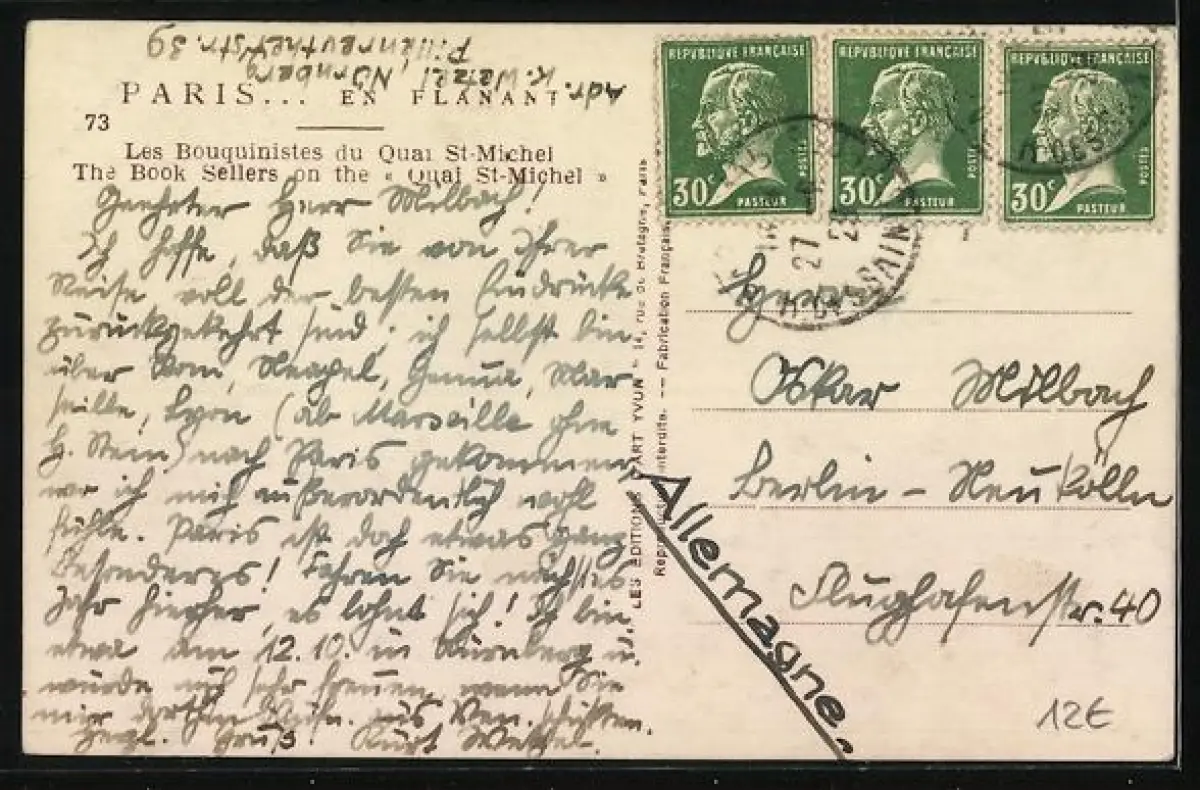 Adr. K. Wetzel, Nürnberg
Pillenreutherstr. 39
PARIS... EN FLANANT
73
Les Bouquinistes du Quai St-Michel
The Book Sellers on the « Quai St-Michel »
Geehrter Herr Milbach!
Ich hoffe, daß Sie von Ihrer
Reise voll der besten Eindrücke
zurückgekehrt sind; ich selbst bin
über Rom, Neapel, Genua, Mar
seille, Lyon (ab Marseille ohne
H. Stein) nach Paris gekommen,
wo ich mich außerordentlich wohl
fühle. Paris ist doch etwas ganz
Besonderes! Fahren Sie nächstes
Jahr hierher, es lohnt sich! Ich bin
etwa am 12.10. in Nürnberg u.
würde mich sehr freuen, wenn Sie
mir dorthin Aufn. aus Ven. schickten.
Herzl. Gruß! Kurt Wetzel.
LES EDITIONS D'ART YVON 14, rue de Bretagne, Paris
interdite. -- Fabrication Française
REPUBLIQUE FRANÇAISE
30c
POSTES
PASTEUR
REPUBLIQUE FRANÇAISE
30c
POSTES
PASTEUR
REPUBLIQUE FRANÇAISE
30c
POSTES
PASTEUR
27
Herrn
Oskar Milbach
Berlin - Neukölln
Flughafenstr. 40
Allemagne.
12€